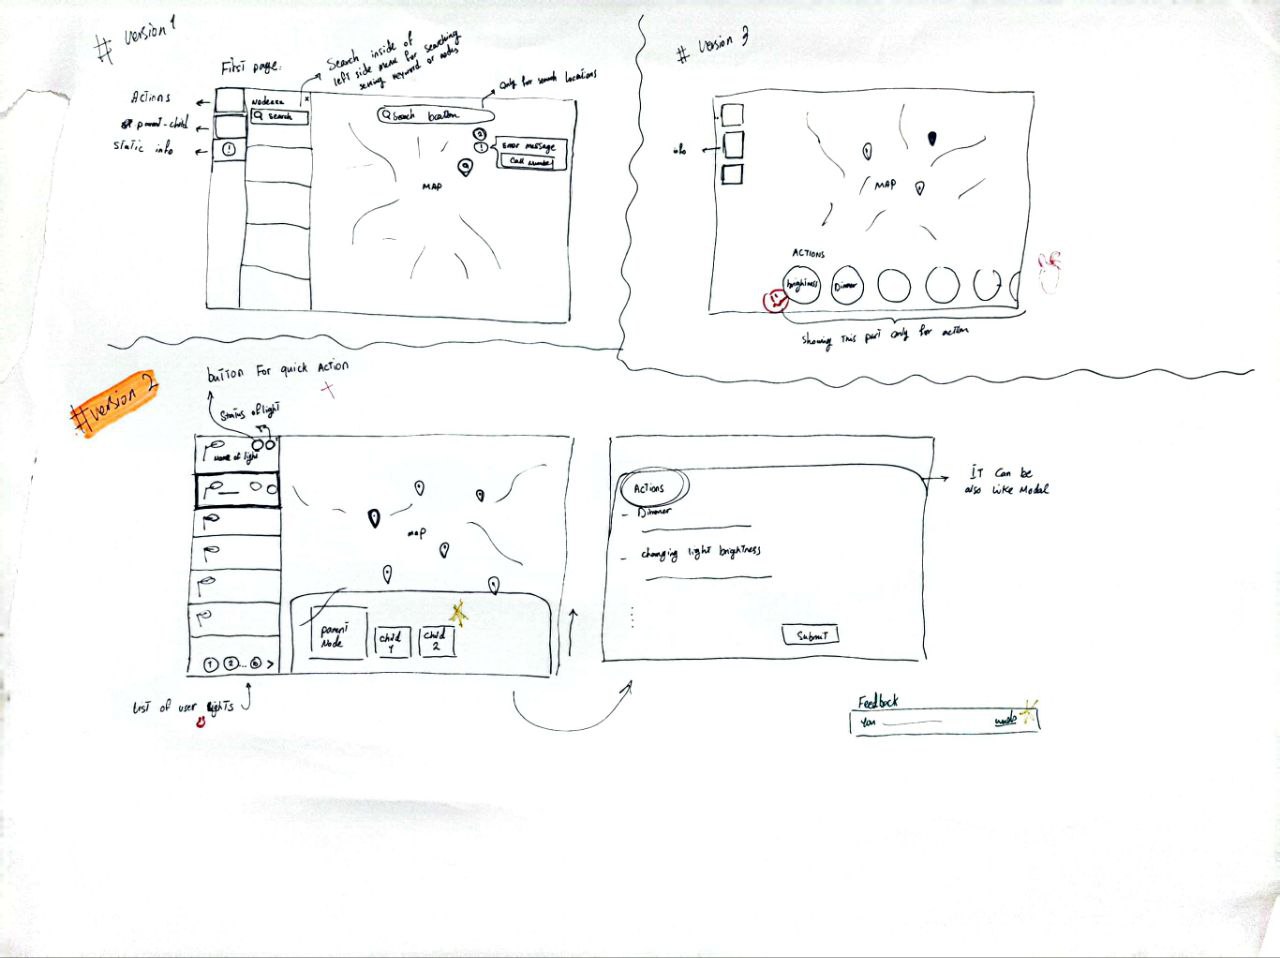 # version 1
First page:
Search inside of
left side menu for searching
setting keyword or nodes
Only for search locations
Actions
parent-child
static info
x
Search
Search location
2
!
!
Error message
Call number
MAP
# Version 3
info
MAP
ACTIONS
brightness
Dimmer
Showing this part only for action
#version 2
button For quick Action
Status of light
Name of light
MAP
Parent
Node
child
1
child
2
1 2 ... 6 >
List of user lights
Actions
- Dimmer
- changing light brightness
Submit
IT can be
also like Modal
Feedback
You
undo